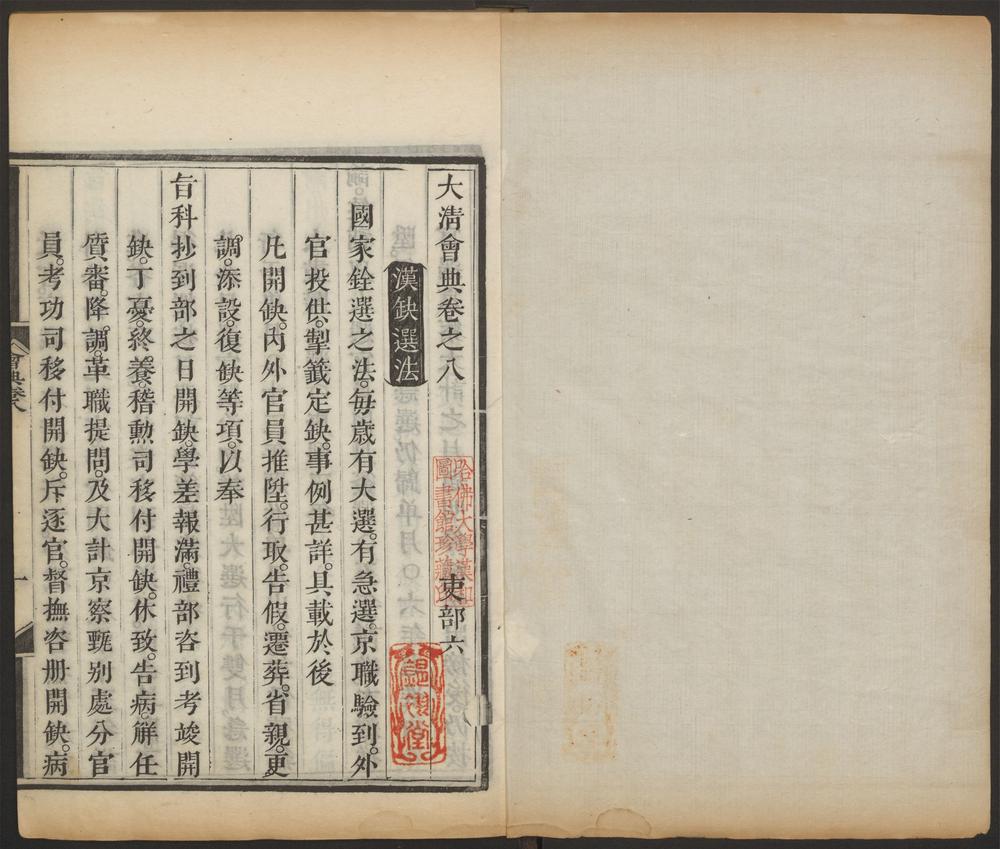 大清會典卷之八
吏部六
哈佛大學漢和
圖書館珍藏印
漢缺選法
國家銓選之法。每歲有大選。有急選。京職驗到。外
官投供。掣籤定缺。事例甚詳。具載於後
凡開缺。內外官員推陞。行取。告假。遷葬。省親。更
調。添設。復缺等項。以奉
旨科抄到部之日開缺。學差報滿。禮部咨到考竣開
缺。丁憂。終養。稽勳司移付開缺。休致。告病。解任
質審。降。調。革職提問。及大計京察甄别處分官
員。考功司移付開缺。斥逐官。督撫咨册開缺。病
會典卷八
一